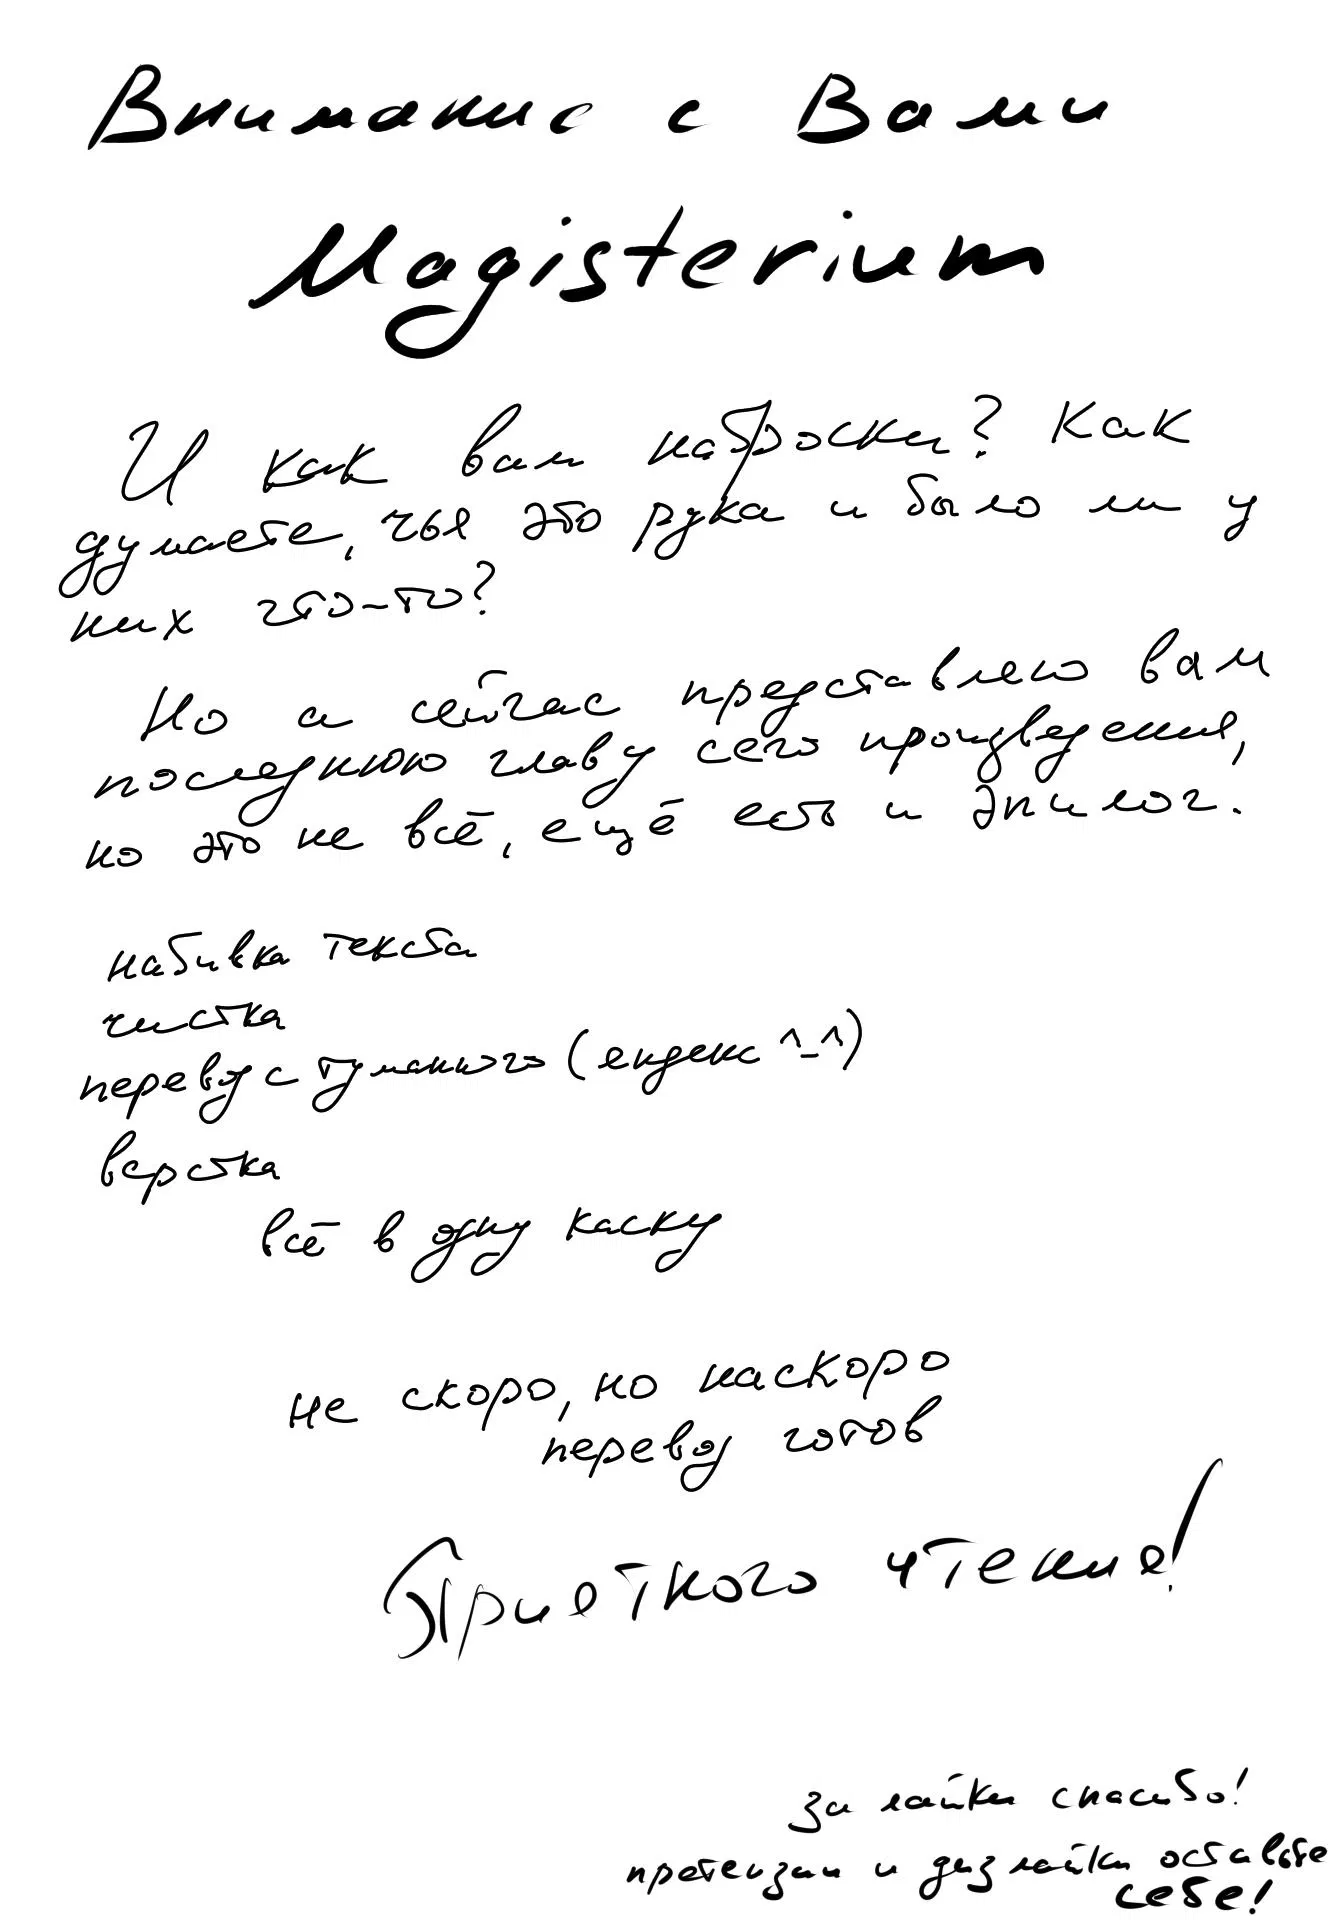 Внимание с Вами
Magisterium
И как вам наброски? Как
думаете, чья это рука и было ли у
них что-то?
Но а сейчас представлю вам
последнюю главу сего произведения,
но это не всё, ещё есть и эпилог.
набивка текста
чистка
перевод с туманного (яндекс ^_^)
верстка
всё в одну каску
не скоро, но наскоро
перевод готов
Приятного чтения!
за лайки спасибо!
претензии и дизлайки оставьте
себе!